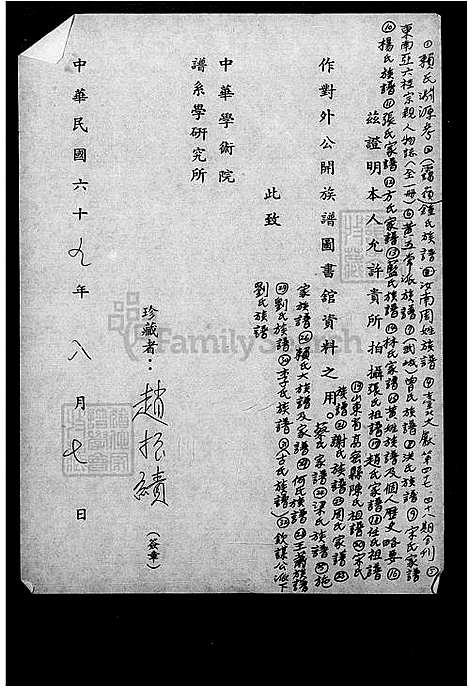 ①賴氏淵源考②(霞葛)鍾氏族譜③汝南周姓族譜④臺北文獻第四七、四十八期合刊⑤
東南亞六桂宗親人物誌(全一冊)⑥黃五常派族譜⑦(武城)曾氏族譜⑧洪氏族譜⑨宋氏家譜
⑩楊氏族譜⑪張氏家譜⑫方氏家譜⑬藍氏族譜⑭林氏家譜⑮黃姓族譜及個人歷史略要⑯
茲證明本人允許貴所拍攝張氏祖譜⑰趙氏家譜⑱任氏祖譜
⑲山東省高密縣陳氏祖譜⑳宋氏
族譜㉑謝氏族譜㉒周氏家譜㉓
作對外公開族譜圖書館資料之用。蔡氏家譜㉔梁氏族譜㉕施
家族譜㉖賴氏大族譜及家譜㉗何氏族譜㉘王蕭族譜
㉙劉氏族譜㉚李氏族譜㉛古氏族譜㉜欽謀公派下
劉氏族譜
此致
中華學術院
譜系學研究所
珍藏者：趙振績(簽章)
中華民國六十九年八月七日
FamilySearch